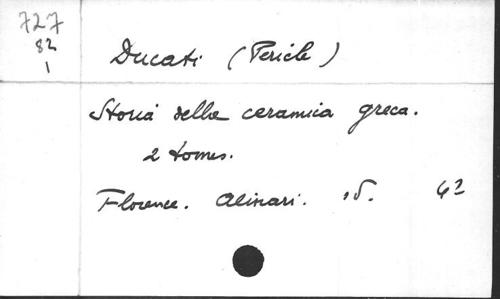 727
82
1
Ducati (Pericle)
Storia della ceramica greca.
2 tomes.
Florence. Alinari. sd. 4²